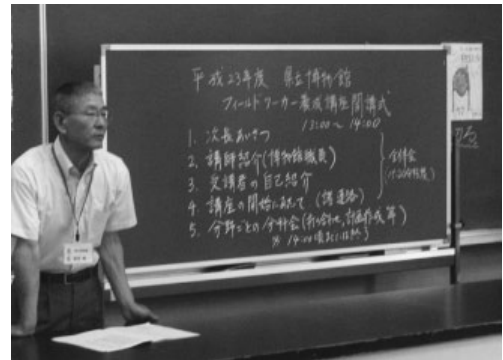 平成23年度 県立博物館
フィールドワーカー養成講座開講式
13:00〜14:00
1. 次長あいさつ
2. 講師紹介(博物館職員)
3. 受講者の自己紹介
4. 講座の開始にあたって (諸連絡)
5. 分野ごとの分科会(打ち合わせ、計画作成等)
※ 14:00頃までには終了
全体会